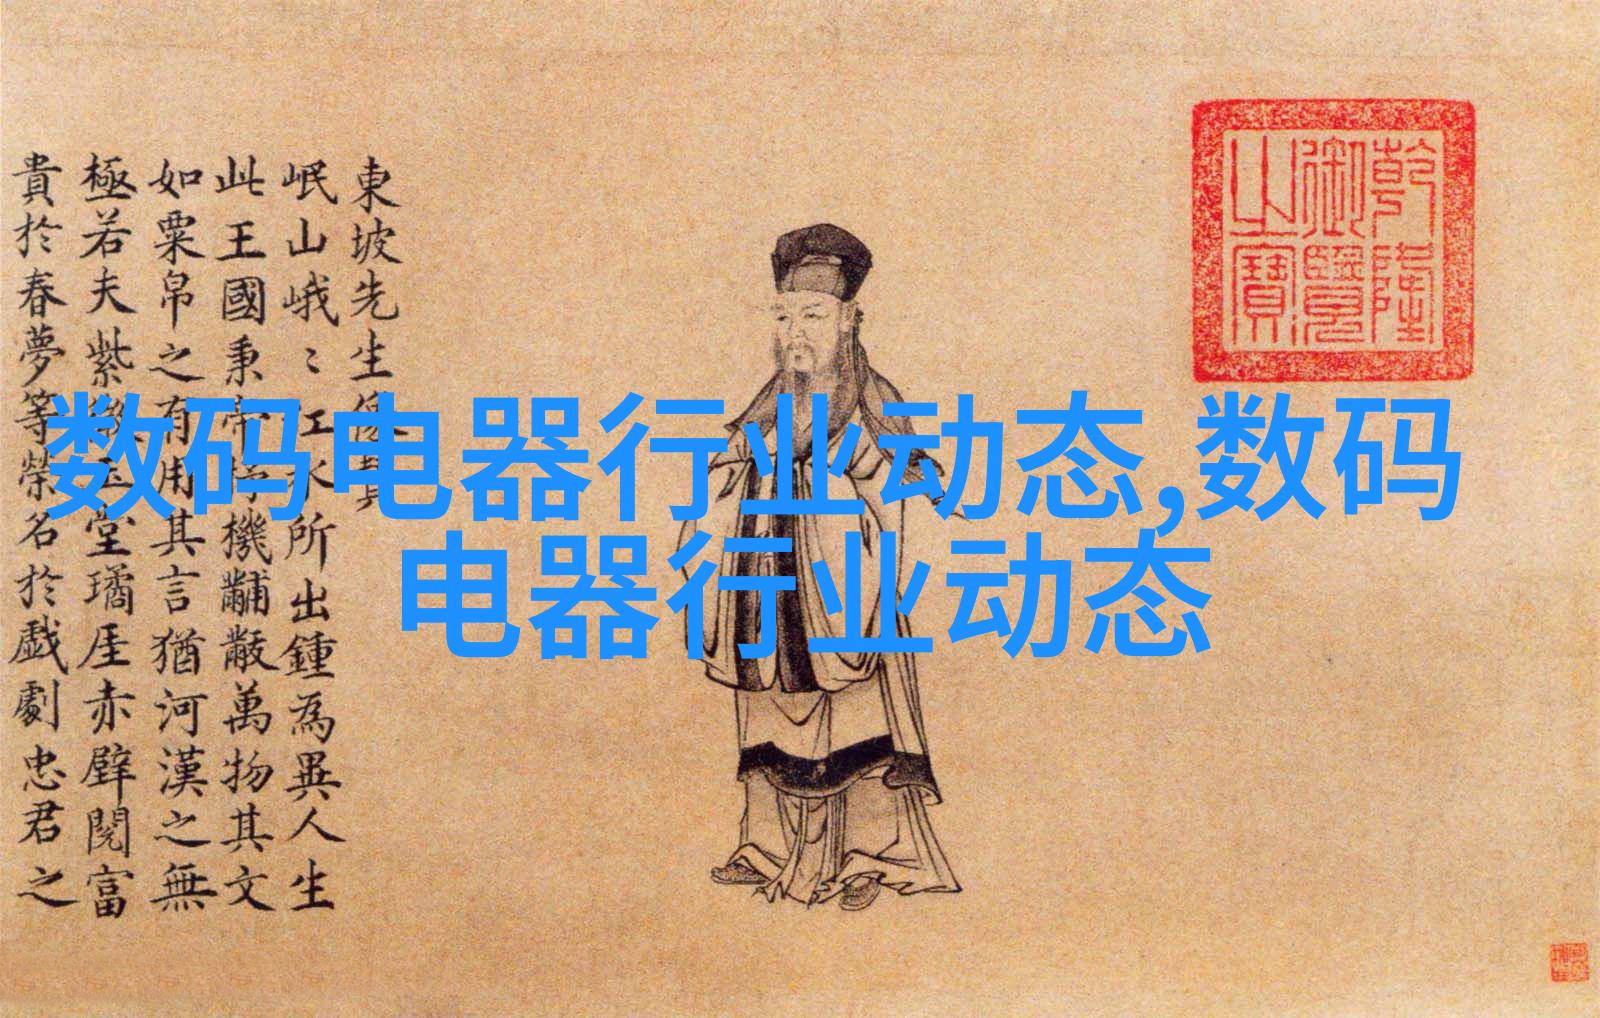 数码电器行业动态,数码
电器行业动态
東坡先生像其
岷山峨〻江水所出鍾為異人生
此王國秉帝杼機黼黻萬物其文
如粟帛之有用其言猶河漢之無
極若夫紫微玉堂璚厓赤壁閱富
貴於春夢等榮名於戲劇忠君之
乾隆
御覽
之寶